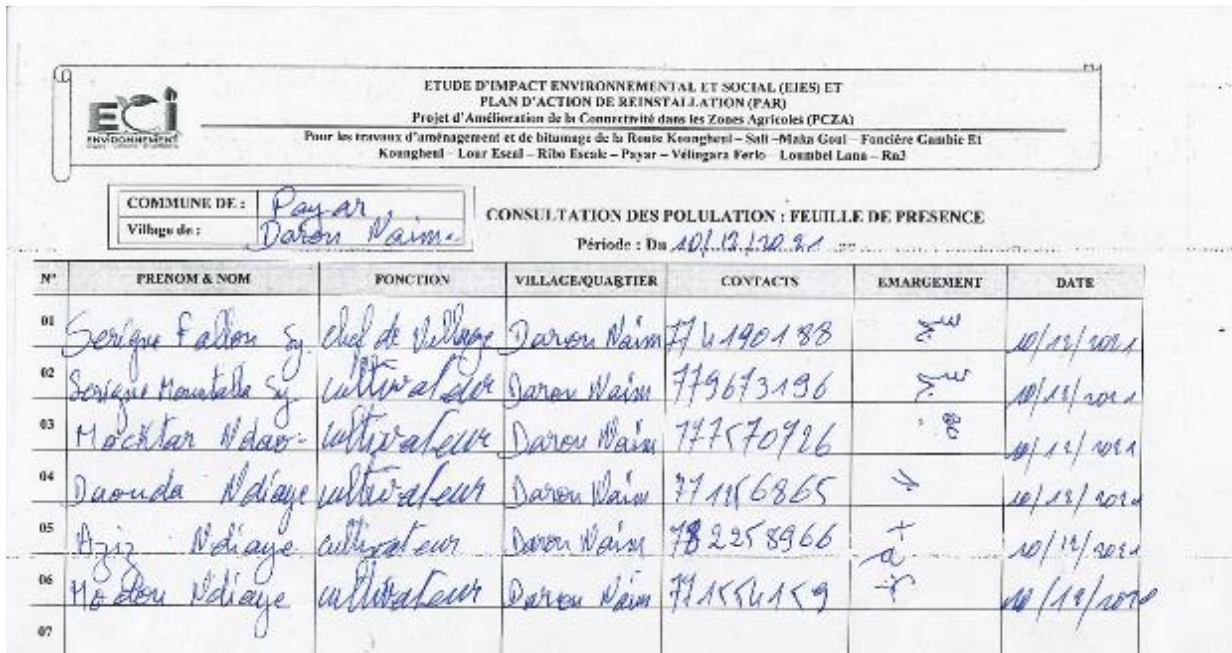 ECi
ENVIRONNEMENT
ETUDE D'IMPACT ENVIRONNEMENTAL ET SOCIAL (EIES) ET
PLAN D'ACTION DE REINSTALLATION (PAR)
Projet d'Amélioration de la Connectivité dans les Zones Agricoles (PCZA)
Pour les travaux d'aménagement et de bitumage de la Route Koungheul – Sali –Maka Goui – Foncière Gambie Et
Koungheul – Lour Escal – Ribo Escale – Payar – Vélingara Ferlo – Loumbel Lana – Rn3
COMMUNE DE : Payar
Village de : Darou Naim
CONSULTATION DES POLULATION : FEUILLE DE PRESENCE
Période : Du 10/12/2021
N° PRENOM & NOM FONCTION VILLAGE/QUARTIER CONTACTS EMARGEMENT DATE
01 Serigne Fallou Sy. Chef de Village Darou Naim 774190188 10/12/2021
02 Serigne Mountalla Sy. cultivateur Darou Naim 779673196 10/12/2021
03 Mochtar Ndao- cultivateur Darou Naim 777570726 10/12/2021
04 Daouda Ndiaye cultivateur Darou Naim 771256865 10/12/2021
05 Aziz Ndiaye cultivateur Darou Naim 782258966 10/12/2021
06 Modou Ndiaye cultivateur Darou Naim 771554159 10/12/2021
07